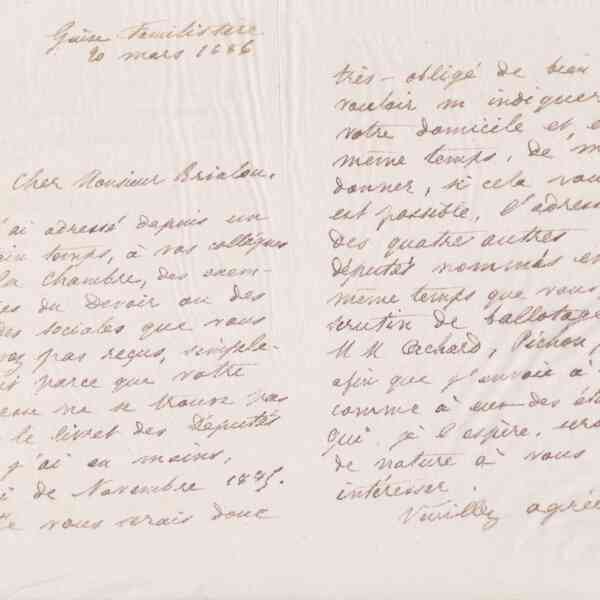 Guise Familistère
20 mars 1886
Cher Monsieur Brialou,
j'ai adressé depuis un
temps, à vos collègues
la chambre, des exem-
du Devoir ou des
sociales que vous
pas reçus, simple-
parce que votre
ne se trouve pas
le livret des Députés
j'ai en mains,
de Novembre 1885.
Je vous serais donc
très-obligé de bien
vouloir m'indiquer
votre domicile et, e
même temps, de m
donner, si cela vous
est possible, l'adresse
des quatre autres
députés nommés en
même temps que vous
scrutin de ballotage
M M Achard, Pichon,
afin que j'envoie à
comme à eux des ét
qui, je l'espère, sero
de nature à vous
intéresser.
Veuillez agrée